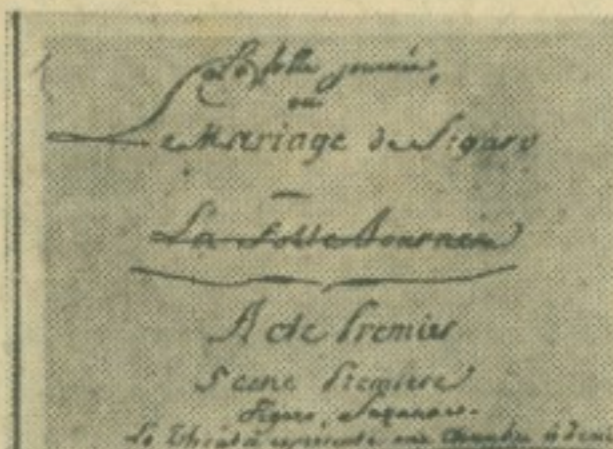 La folle journée,
ou
Le Mariage de Figaro
La Folle Journée
Acte Premier
Scene Premiere
Figaro, Suzanne.
Le Théatre represente une chambre à demi